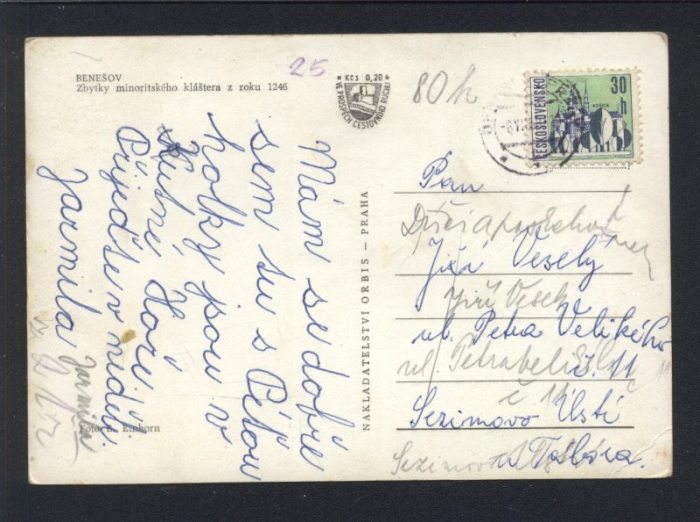 BENEŠOV
Zbytky minoritského kláštera z roku 1246
25
Kčs 0,20
VE PROSPĚCH CESTOVNÍHO RUCHU
80 h
30 h
ČESKOSLOVENSKO
KOŠICE
Mám se dobře
sem tu s Péťou
holky jsou v
Kutné Hoře
Přijeďte v neděli.
Jarmila
Jarmila
Foto E. Einhorn
NAKLADATELSTVÍ ORBIS — PRAHA
Pan
Jiří Veselý
Jiří Vesel
ul. Petra Velikého
č. 11
ul. Petra
č 11
Sezimovo Ústí
u Tábora.
Sezimovo